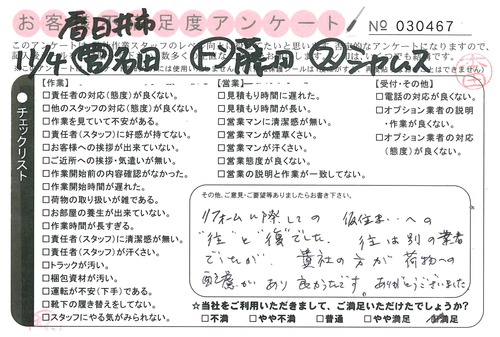 お客様満足度アンケート
№ 030467
春日井市
11/4
【作業】
□責任者の対応(態度)が良くない。
□他のスタッフの対応(態度)が良くない。
□作業を見ていて不安がある。
□責任者(スタッフ)に好感が持てない。
□お客様への挨拶が出来ていない。
□ご近所への挨拶・気遣いが無い。
□作業開始前の内容確認がなかった。
□作業開始時間が遅れた。
□荷物の取り扱いが雑である。
□お部屋の養生が出来ていない。
□作業時間が長すぎる。
□責任者(スタッフ)に清潔感が無い。
□責任者(スタッフ)が汗くさい。
□トラックが汚い。
□梱包資材が汚い。
□運転が不安(下手)である。
□靴下の履き替えをしてない。
□スタッフにやる気がみられない。
【営業】
□見積もり時間に遅れた。
□見積もり時間が長い。
□営業マンに清潔感が無い。
□営業マンが煙草くさい。
□営業マンが汗くさい。
□営業態度が良くない。
□営業の説明と作業が一致してない。
【受付・その他】
□電話の対応が良くない。
□オプション業者の説明
・作業が良くない。
□オプション業者の対応
(態度)が良くない。
●チェックリスト
その他、ご意見・ご要望等ありましたらお書き下さい。
リフォームに際しての 仮住まいへの
"往"と"復"でした。 往は別の業者
でしたが、貴社の方が荷物への
配慮があり 良かったです。ありがとうございました
☆当社をご利用いただきまして、ご満足いただけたでしょうか?
□不満 □やや不満 □普通 □やや満足 満足